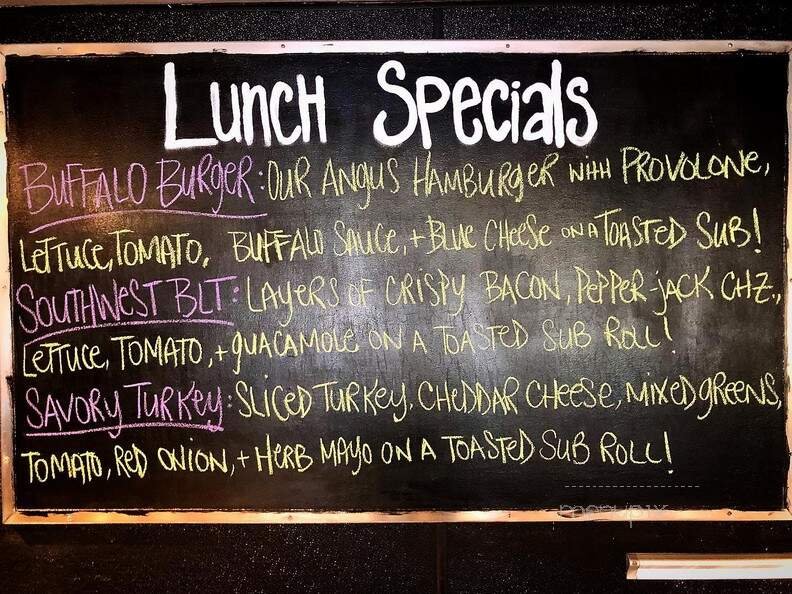 Lunch Specials
Buffalo Burger: Our Angus Hamburger with Provolone,
Lettuce, Tomato, Buffalo Sauce, + Blue Cheese on a Toasted Sub!
Southwest BLT: Layers of Crispy Bacon, Pepper-jack Chz.,
Lettuce, Tomato, + guacamole on a Toasted Sub Roll!
Savory Turkey: Sliced Turkey, Cheddar Cheese, mixed greens,
Tomato, Red Onion, + Herb Mayo on a Toasted Sub Roll!
menupix